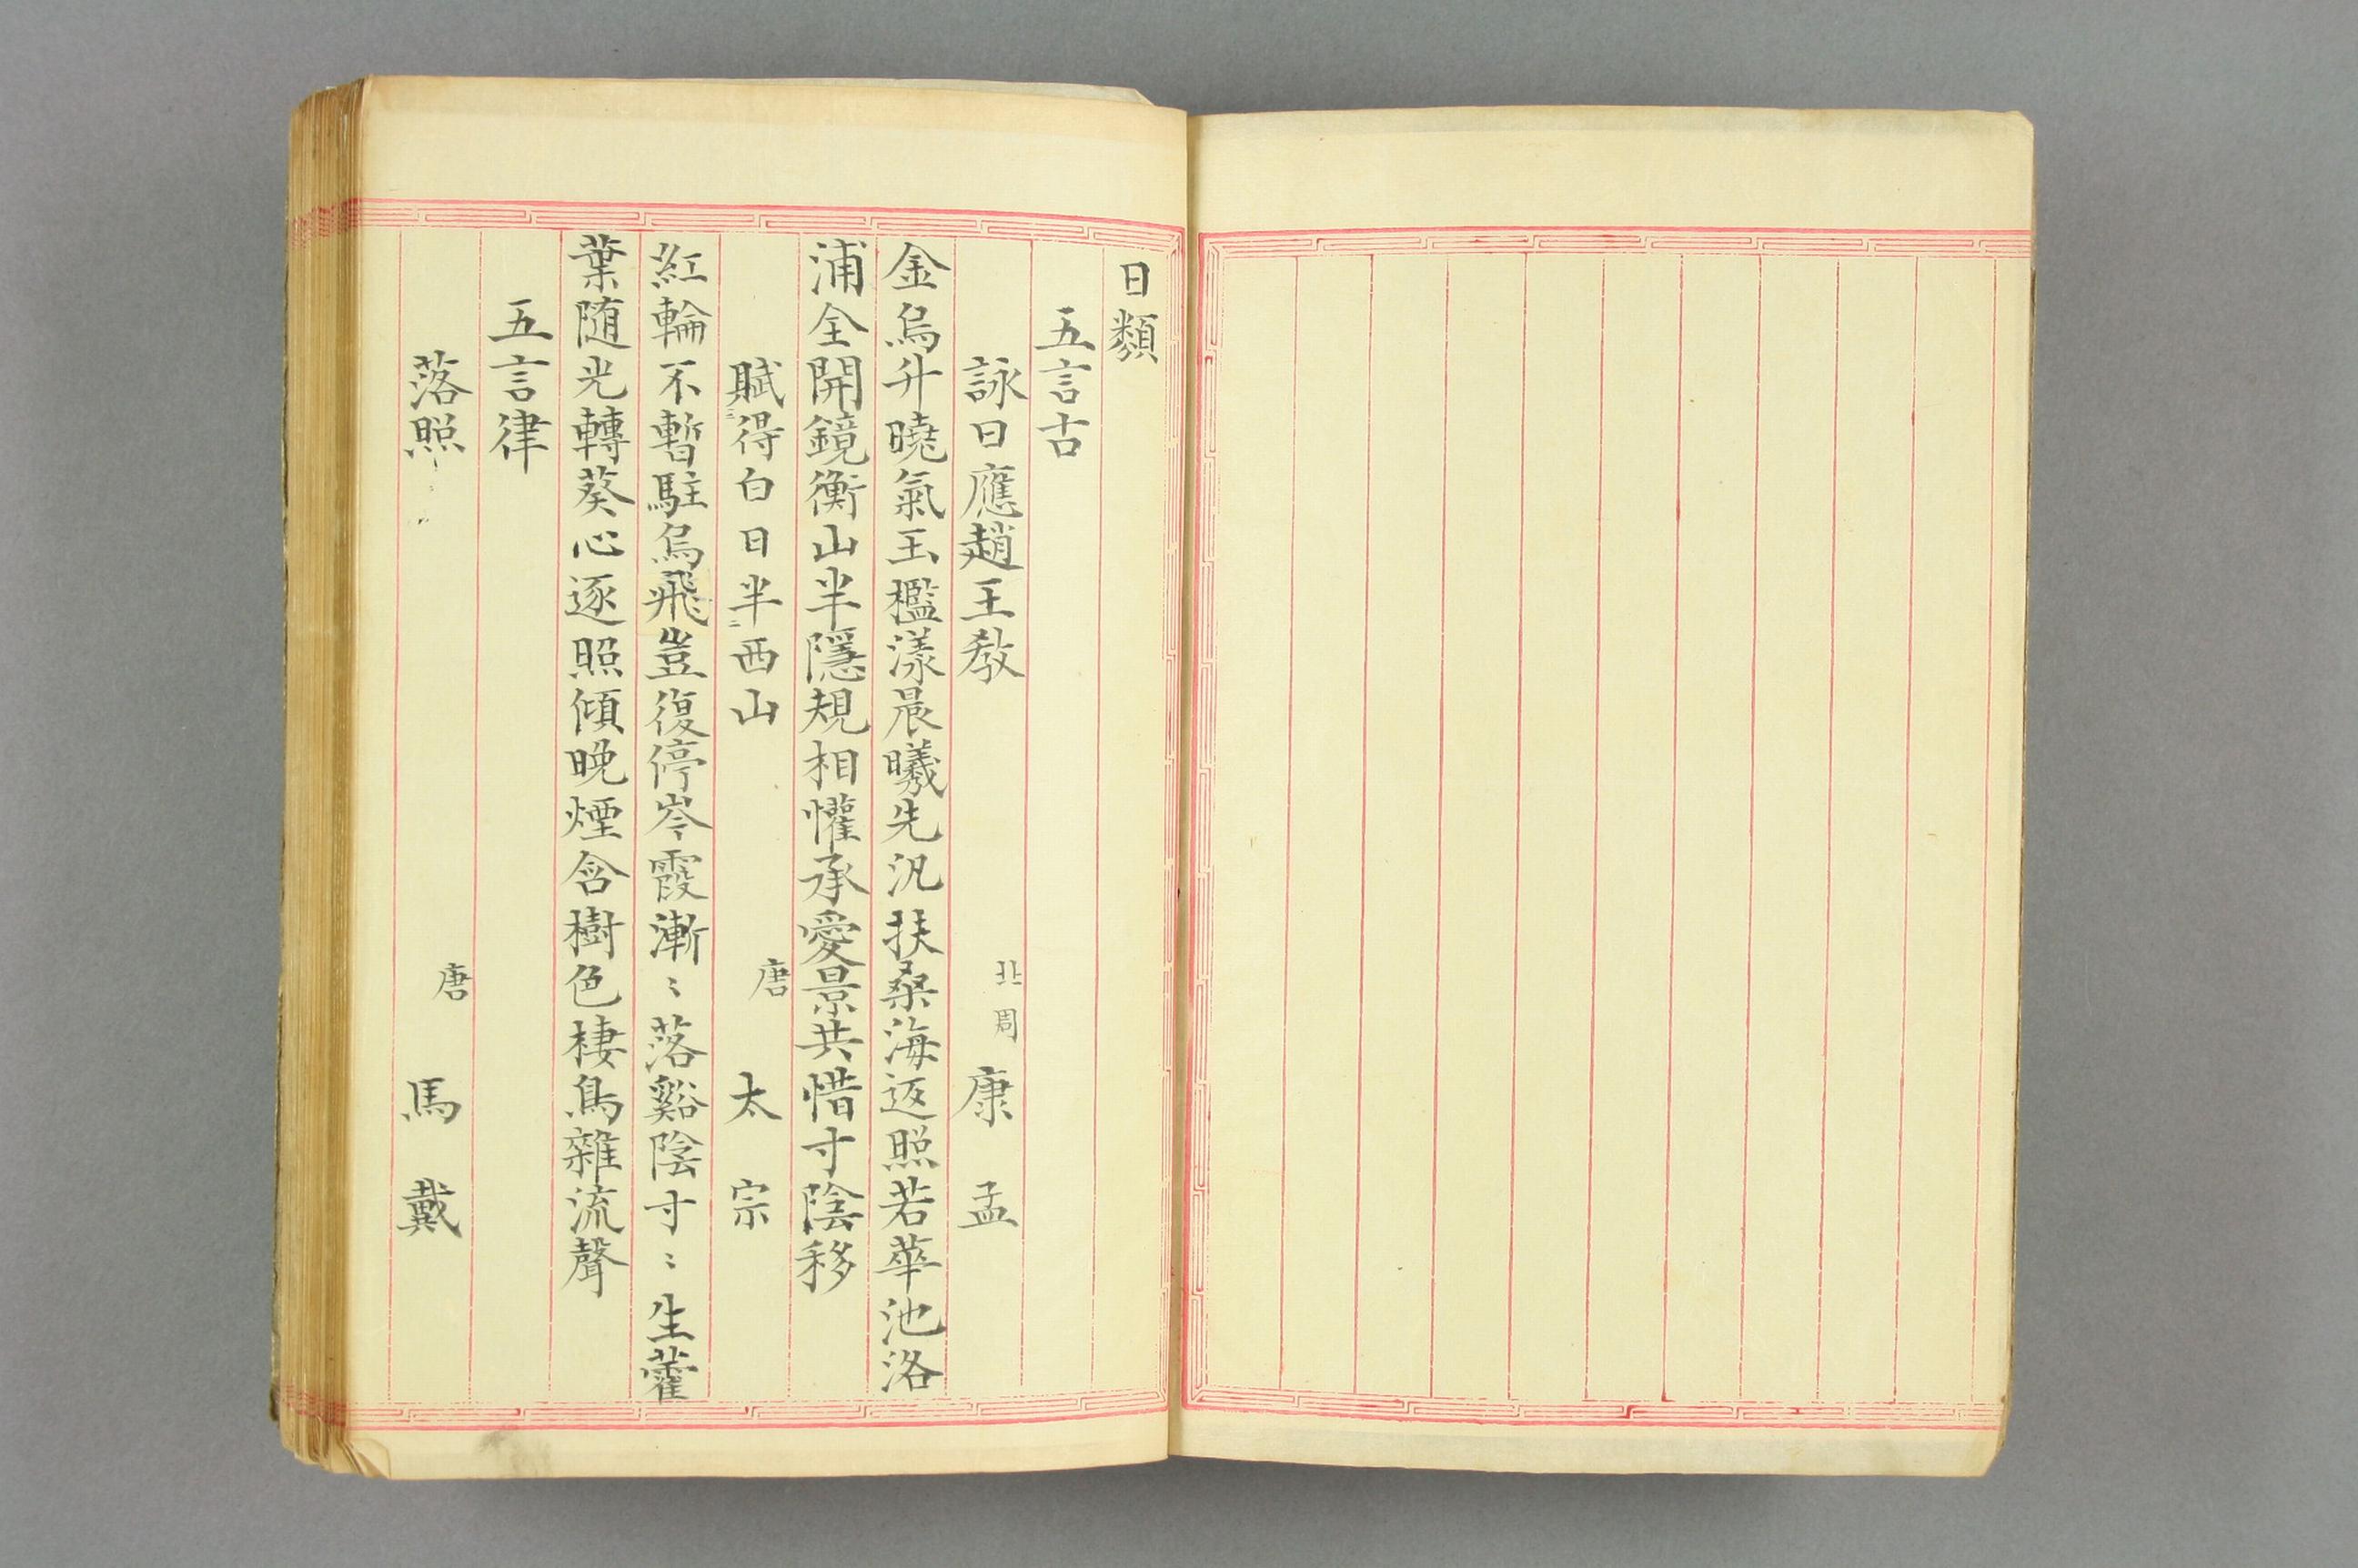 日類
五言古
詠日應趙王教 北周 康孟
金烏升曉氣玉檻漾晨曦先汎扶桑海返照若華池洛
浦全開鏡衡山半隱規相懽承愛景共惜寸陰移
賦得白日半西山 唐 太宗
紅輪不暫駐烏飛豈復停岑霞漸〻落谿陰寸〻生藿
葉随光轉葵心逐照傾晚煙含樹色棲鳥雜流聲
五言律
落照 唐 馬戴